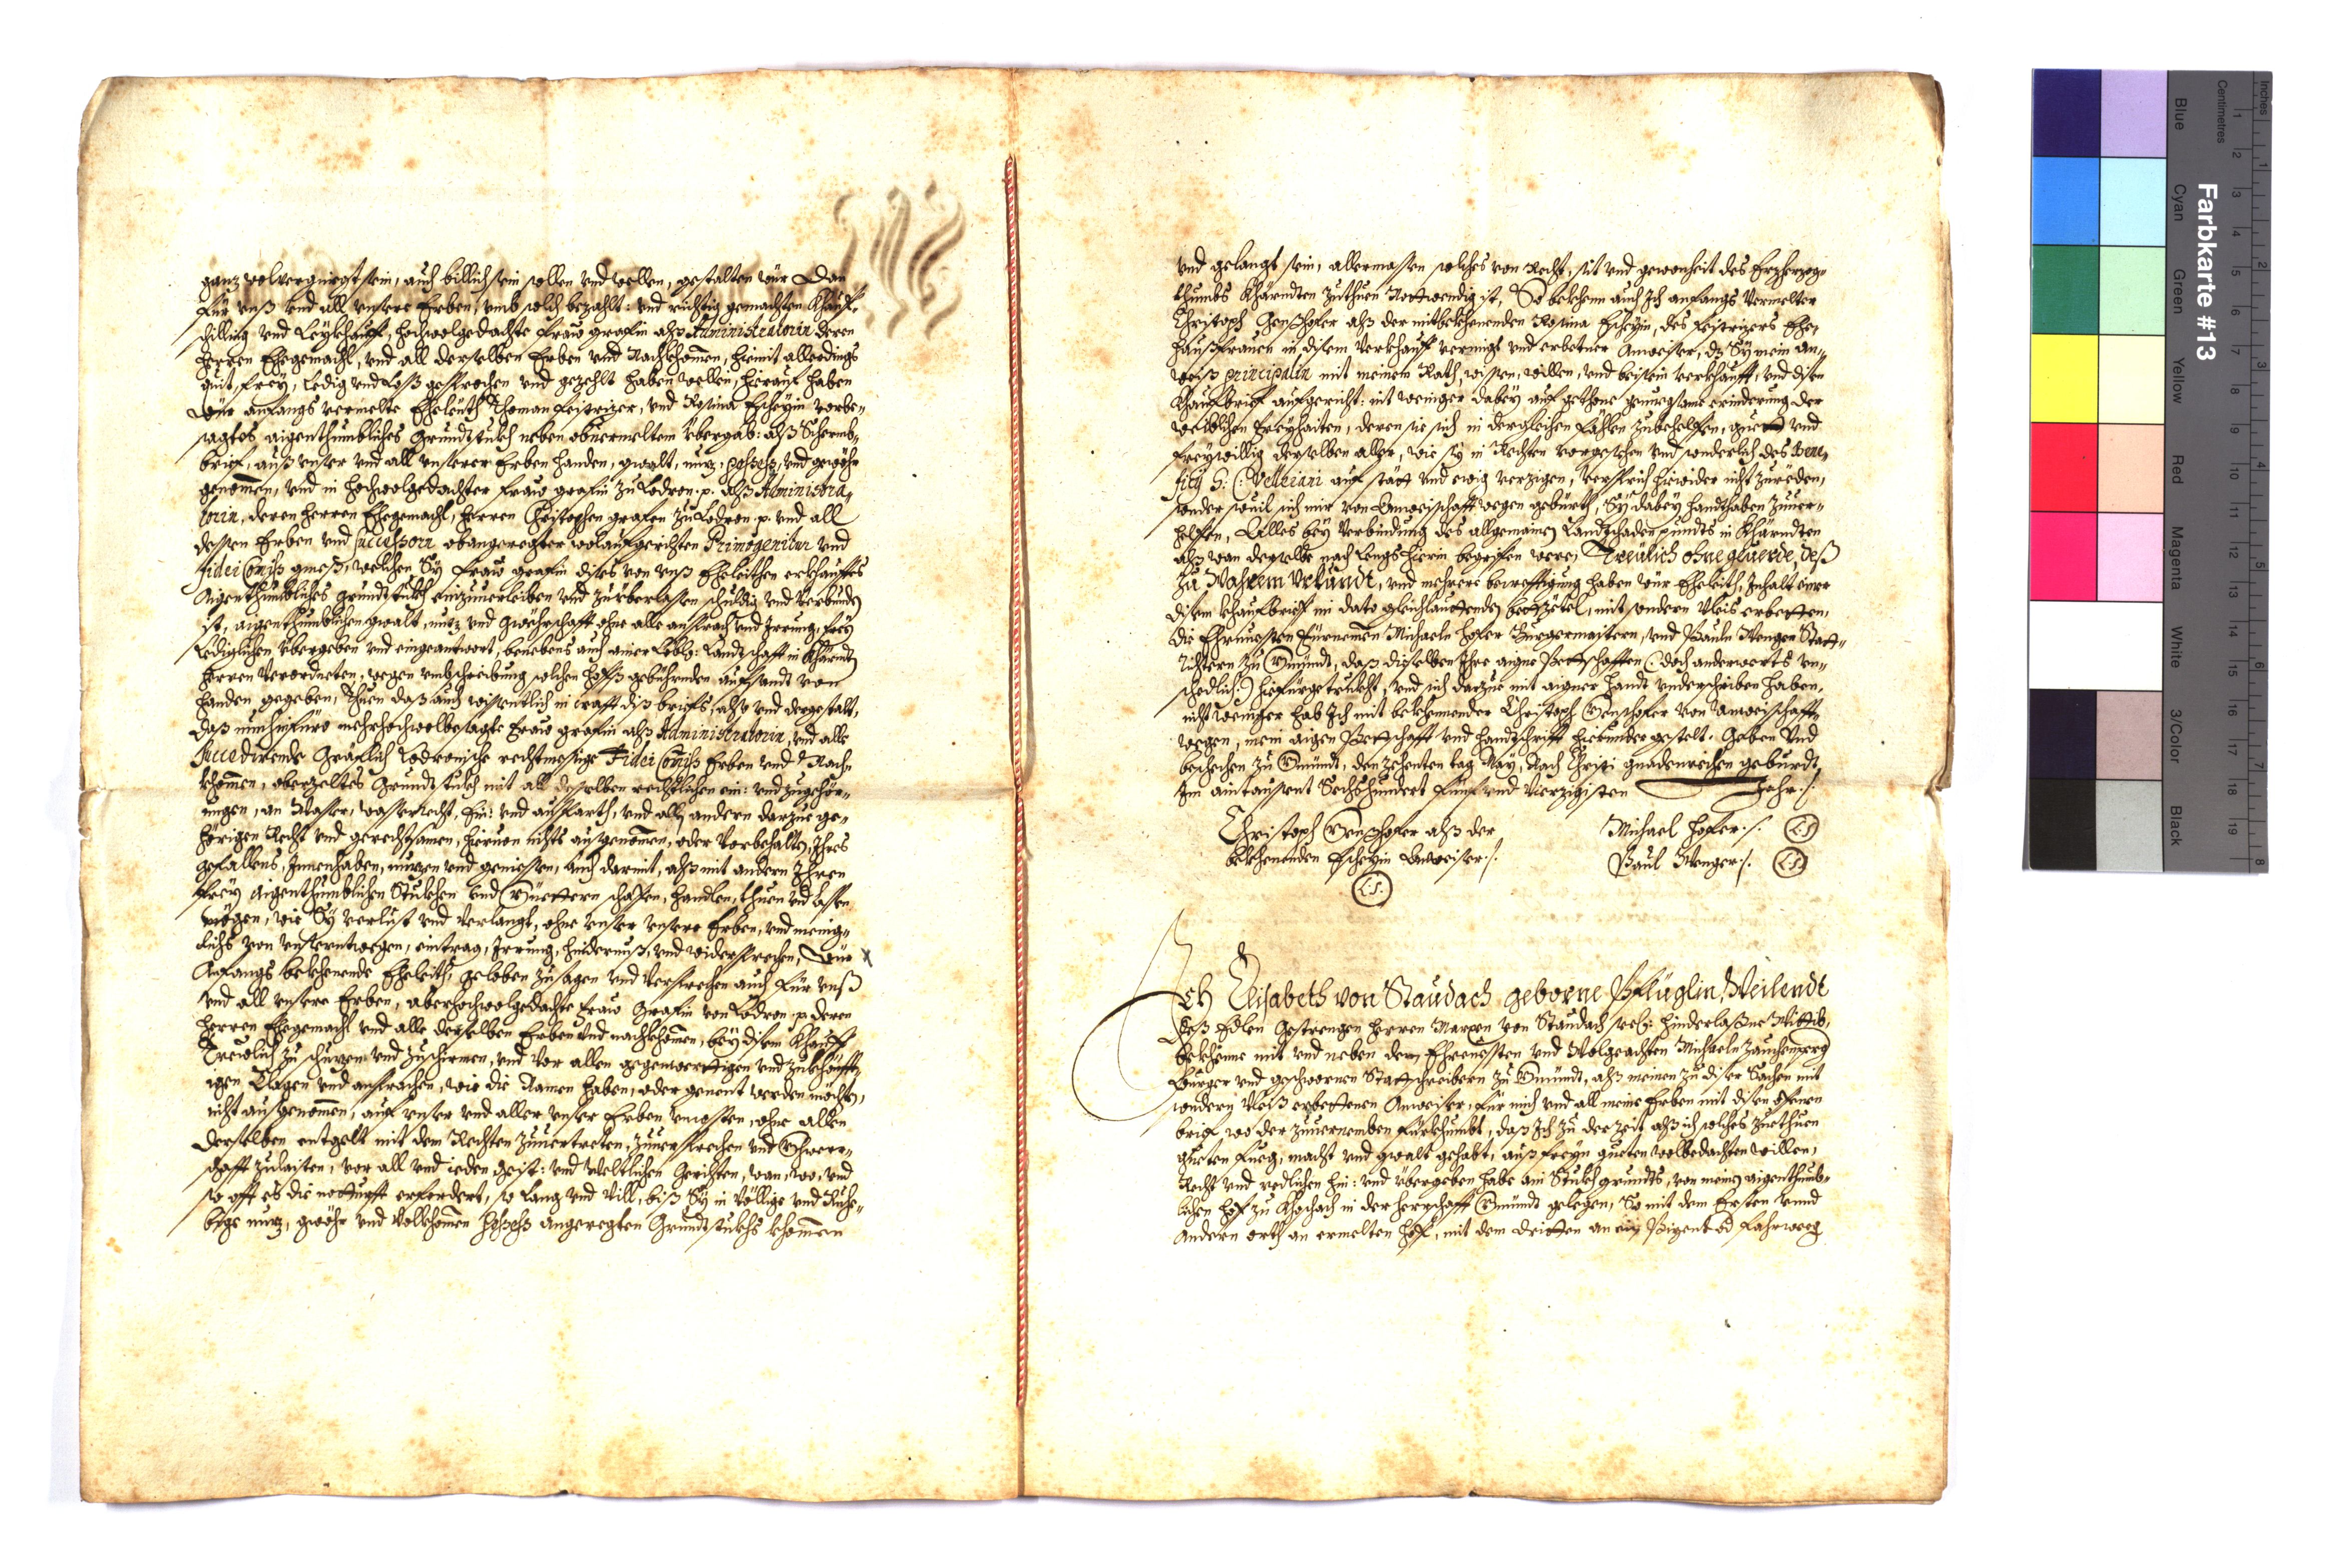 ganz volvergnüegt sein, auch billich sein sollen vnd wellen, gestalten wür dan
für unß vnd all vnsere Erben, vmb solch bezahlt: vnd richtig gemachten Khauf¬
schilling vnd Leykhauff, hochwolgedachte Fraw grafin alß Administratorin deren
Herren Ehegemachl, vnd all derselben Erben vnd Nachkhomen, hiemit allerdings
quit, frey, ledig vnd loß gesprochen vnd gezehlt haben wellen, hierauf haben
Wür anfangs vermelte Eheleüth Thoman Feistrizer, vnd Rosina Eschyin vorbe¬
sagtes aigenthumbliches Grundtstukh neben obuermeltem Übergab: alß Schermb¬
brief, auß vnser vnd all vnserer Erben handen, gwalt, nuz, possess, vnd gewöhr
genomen, vnd in hochwolgedachter Fraw grafin zu Lodron .p. alß Administra¬
torin, deren Herren Ehegemachl, Herren Christophen grafen zu Lodron .p. vnd all
dessen Erben vnd Successorn obangeregter wolaufgerichten Primogenitur vnd
fidei Comiss gmeß, welchen Sy Fraw grafin dises von unß Eheleithen erkhauftes
Aigenthumbliches grundtstukh einzuuerleiben vnd zuüberlassen schuldig vnd verbunden
ist, aigenthumblichen gwalt, nuz vnd gwöhrschafft ohne alle ansprach vnd Irrung, frey
Lediglichen übergeben vnd eingeantwort, benebens auch ainer Lobl: Landtschafft in Khärndten
Herren Verordneten, wegen vmbschreibung solchen hofß gebührenden aufsandt von
handen gegeben, Thuen daß auch wissentlich in crafft diß briefs, also vnd dergestalt,
daß nun hinfüro mehrhochwolbesagte Fraw grafin alß Administratorin, vnd alle
Succedirende Gräflich Lodronische rechtmesige Fidei Comiss Erben vnd Nach¬
khomen, oberzeltes Grundtstukh mit all desselben rechtlichen ein: vnd zugehör¬
ungen, an Wasser, wasserrecht, Ein: vnd ausfarth, vnd all andern darzue ge¬
hörigen Recht vnd gerechtsamen, hieruon nichts ausgenomen, oder vorbehalten, Ihres
gefallens, Innenhaben, nuzen vnd geniessen, auch darmit, alß mit andern Ihren
frey aigenthumblichen Stukhen vnd Güettern schaffen, handlen, thuen vnd lassen
mögen, wie Sy verlust vnd verlangt, ohne vnser vnserer Erben, vnd menig¬
lichs von vnserntwegen, eintrag, Irrung, hindernuß, vnd widersprechen, Wür
Anfangs bekhennende Eheleith, geloben zusagen vnd versprechen auch für unß
vnd all vnsere Erben, aberhochwolgedachte Fraw Grafin von Lodron .p. deren
Herren Ehegemachl vnd alle derselben Erben vnd nachkhomen, bey disem Khauf
Treulich zu schuzen vnd zuschirmen, vnd vor allen gegenwerttigen vnd zukhünfft¬
igen Clagen vnd ansprachen, wie die Namen haben, oder genent werden möchten,
nicht ausgenomen, auf vnser vnd aller vnser Erben vncosten, ohne allen
derselben entgelt mit dem Rechten zuuertreten, zuuersprechen vnd Gwehr¬
schafft zulaisten, vor all vnd ieden geist: vnd Weltlichen Gerichten, wan, wo, vnd
so offt es die notturft erfordert, so lang vnd vill, biß Sy in Völlige vnd Ruhe¬
bige nuz, gwöhr vnd Volkhomen possess angeregten Grundtstukhs khomen
vnd gelangt sein, allermassen solches von Recht, sit vnd gewonheit des Erzherzog¬
thumbs Khärndten zuthuen Nottwendig ist, So bekhenn auch Ich anfangs vermelter
Christoph Genßhofer alß der mitbekhenenden Rosina Eschyin, des Feistrizers Ehe¬
haußfrauen in disem Verkhauf vermigt vnd erbetner Anweiser, dz Sy mein an¬
weiß principalin mit meinem Rath, wissen, willen, vnd beisein verkhaufft, vnd disen
Khaufbrief aufgericht: nit weniger dabey auf gethone genuegsame erinderung der
weiblichen Freyhaiten, deren sie sich in dergleichen Fählen zubehelfen, guet vnd
freywillig derselben aller, wie sy in Rechten vorgesehen vnd sonderlich des Bene¬
ficij S: C: Velleiani auf stätt vnd ewig verzigen, versprich hiewider nicht zureden,
sonder souil sich mir von Anweischafft wegen gebürth, Sy dabey handthaben zuuer¬
helfen, Alles bey Verbindung des allgemainen Landtschadenpundts in Khärndten
alß wan derselbe nach Lengs hierin begrifen were, Treülich ohne gfuerde, deß
zu Wahrem Vrkundt, vnd mehrere becrefftigung haben wür Eheleith, Inhalt einer
disem khaufbrief in dato gleichlauttenden bettzetl, mit sondern vleis erbetten,
die Ehrnuesten Fürnemen Michaeln Hofer Burgermaistern, vnd Paulen Wenger Statt¬
Richtern zu Gmündt, daß dieselben Ihre aigne Pettschafften (: doch anderwerts vn¬
schedlich :) hiefürgetrukht, vnd sich darzue mit aigner handt vnderschriben haben.
nicht weniger hab Ich mit bekhennender Christoph Genshofer von Anweischafft
wegen, mein aigen Pettschafft vnd handtschrifft hierunder gestelt. Geben vnd
beschechen zu Gmündt, den zehenten tag May, Nach Christi gnadenreichen geburdt,
Im aintausent Sechshundert fünf vnd Vierzigisten Jahr ./.
Christoph Genßhofer alß der
bekhenenden Eschyin Anweiser ./.
L.S.
Michael Hofer ./. L.S.
Paul Wenger ./. L.S.
Ich Elisabeth von Staudach geborne Pflüglin, Weilendt
deß Edlen Gestrengen Herren Marxen von Staudach sel: hinderlaßne Wittib,
bekhenne mit vnd neben dem Ehrnuesten vnd Wolgeachten Michaeln Zauchenperg
Burger vnd geschwornen Stattschreibern zu Gmündt, alß meinen zu diser Sachen mit
sondern vleiß erbettenen Anweiser, für mich vnd all meine Erben mit disen offnen
brief wo der zuuernemben fürkhumbt, daß Ich zu der zeit alß ich solches zuethuen
gueten fueg, macht vnd gwalt gehabt, auß freyn gueten wolbedachten willen,
Recht vnd redlichen hin: vnd übergeben habe ain Stukh grundts, von meinen aigenthumb¬
lichen hof zu Khochach in der herrschafft Gmündt gelegen, So mit dem Ersten vnnd
Andern orth an ermelten hof, mit dem dritten an ein Vigent od Fahrweeg